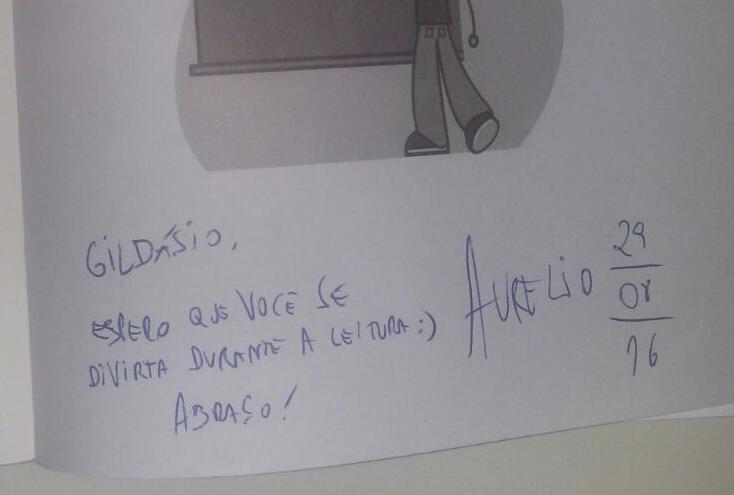 GILDÁSIO,
ESPERO QUE VOCE SE
DIVIRTA DURANTE A LEITURA :)
ABRAÇO!
AURELIO
29
08
16